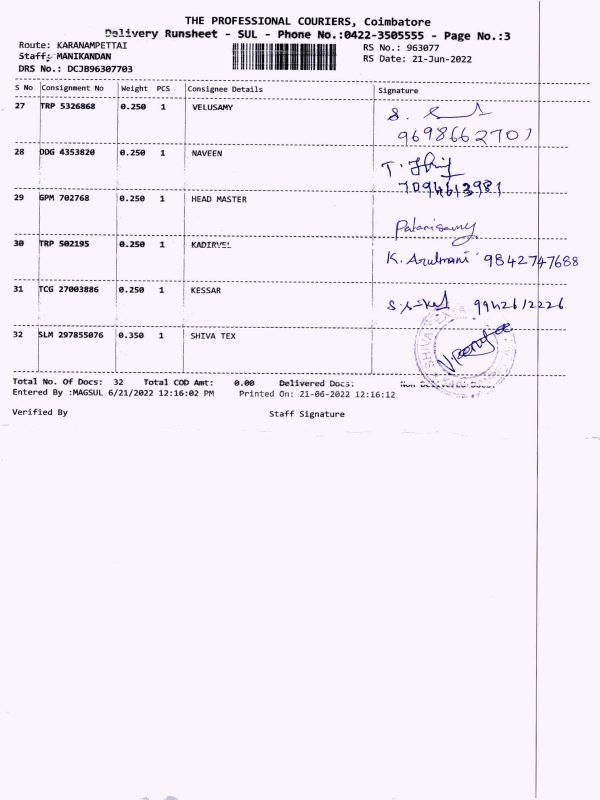 THE PROFESSIONAL COURIERS, Coimbatore
Delivery Runsheet - SUL - Phone No.:0422-3505555 - Page No.:3
Route: KARANAMPETTAI RS No.: 963077
Staff: MANIKANDAN RS Date: 21-Jun-2022
DRS No.: DCJB96307703
S No Consignment No Weight PCS Consignee Details Signature
27 TRP 5326868 0.250 1 VELUSAMY
9698662707
28 DDG 4353820 0.250 1 NAVEEN
7094613981
29 GPM 702768 0.250 1 HEAD MASTER
Palanisamy
30 TRP 502195 0.250 1 KADIRVEL
K. Arulmani 9842747688
31 TCG 27003886 0.250 1 KESSAR
9942612226
32 SLM 297855076 0.350 1 SHIVA TEX
SHIVA TEX
Total No. Of Docs: 32 Total COD Amt: 0.00 Delivered Docs: Non Delivered Docs:
Entered By :MAGSUL 6/21/2022 12:16:02 PM Printed On: 21-06-2022 12:16:12
Verified By Staff Signature